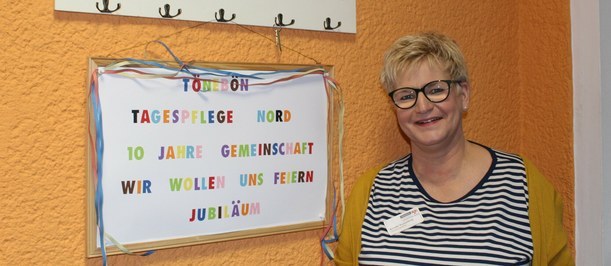 TÖNEBÖN
TAGESPFLEGE NORD
10 JAHRE GEMEINSCHAFT
WIR WOLLEN UNS FEIERN
JUBILÄUM